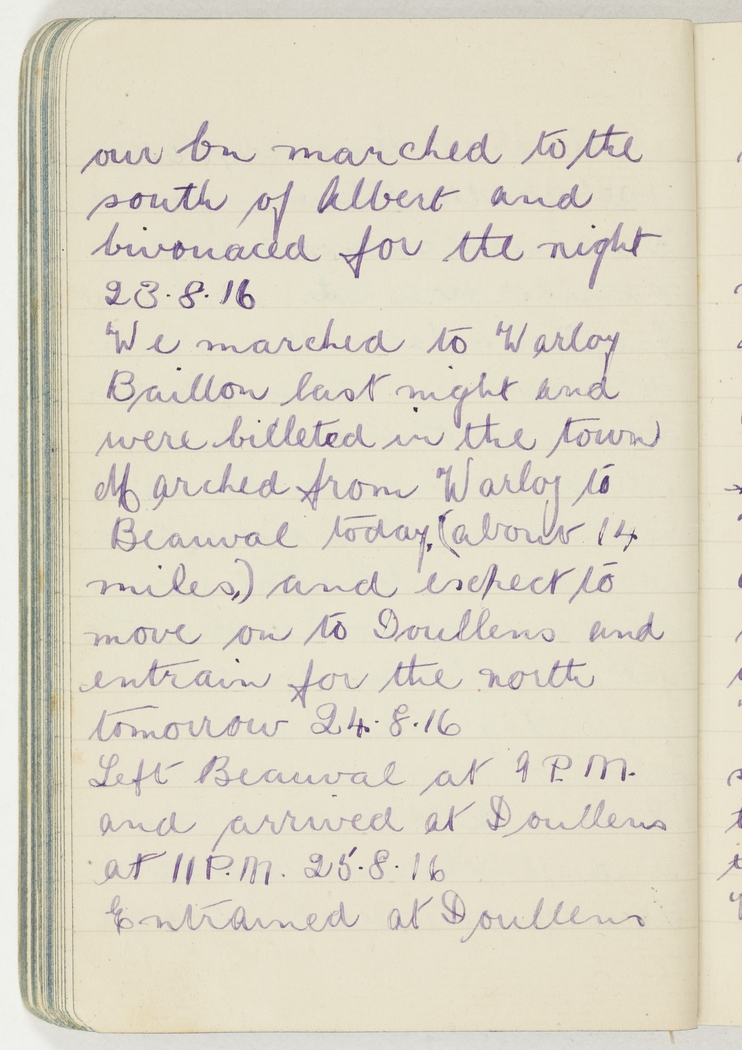 our bn marched to the
south of Albert and
bivouaced for the night
23.8.16
We marched to Warloy
Baillon last night and
were billeted in the town
Marched from Warloy to
Beauval today, (about 14
miles,) and expect to
move on to Doullens and
entrain for the north
tomorrow 24.8.16
Left Beauval at 9 P.M.
and arrived at Doullens
at 11 P.M. 25.8.16
Entrained at Doullens